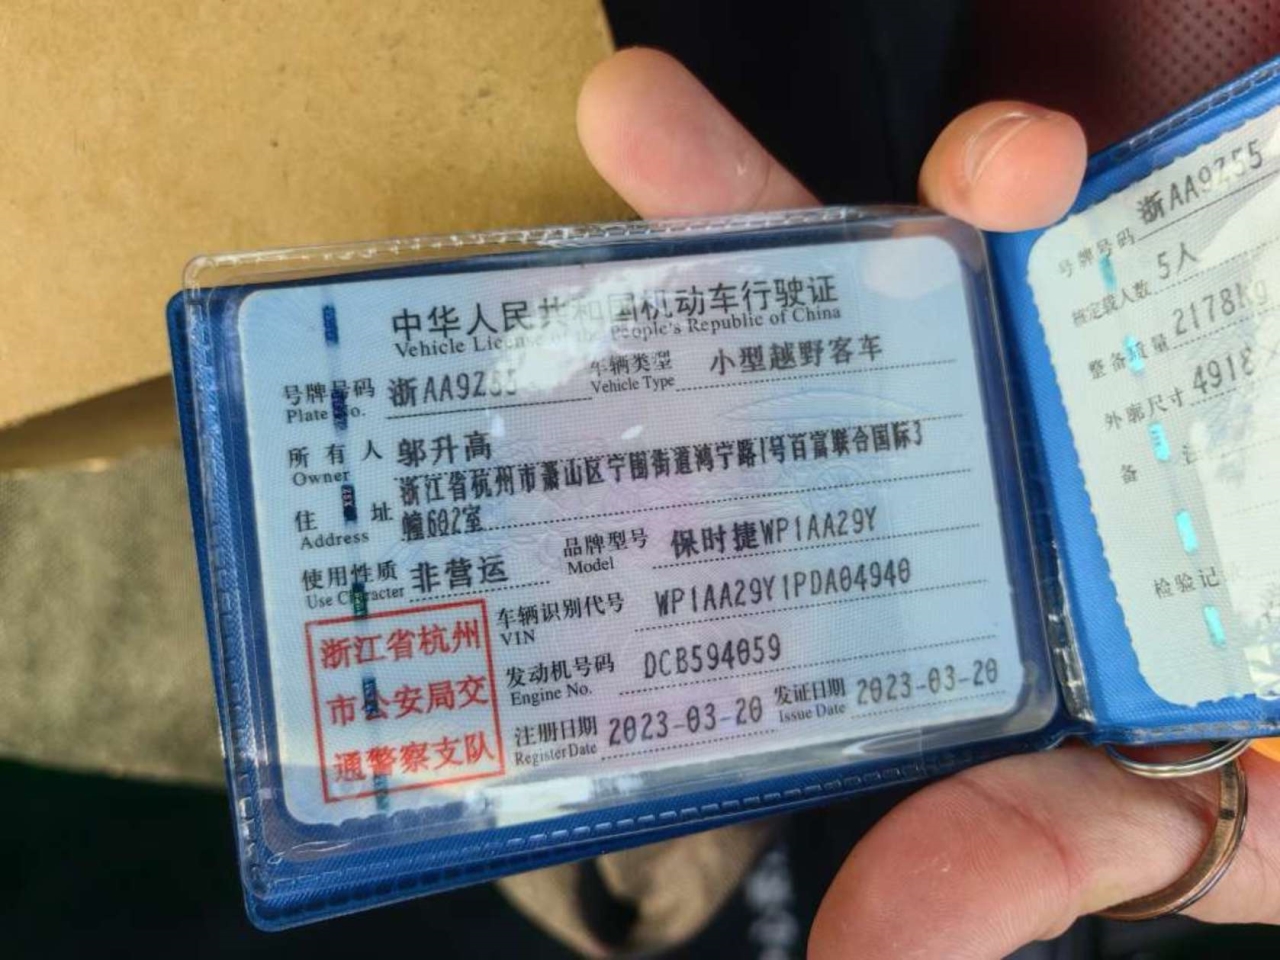 中华人民共和国机动车行驶证
Vehicle License of the People's Republic of China
号牌号码 浙AA9Z55 车辆类型 小型越野客车
Plate No. Vehicle Type
所有人 邬升高
Owner
住址 浙江省杭州市萧山区宁围街道鸿宁路1号百富联合国际3
Address 幢602室
使用性质 非营运 品牌型号 保时捷WP1AA29Y
Use Character Model
车辆识别代号 WP1AA29Y1PDA04940
VIN
发动机号码 DCB594059
Engine No.
注册日期 2023-03-20 发证日期 2023-03-20
Register Date Issue Date
浙江省杭州
市公安局交
通警察支队
号牌号码 浙AA9Z55
核定载人数 5人
整备质量 2178Kg
外廓尺寸 4918×
备注
检验记